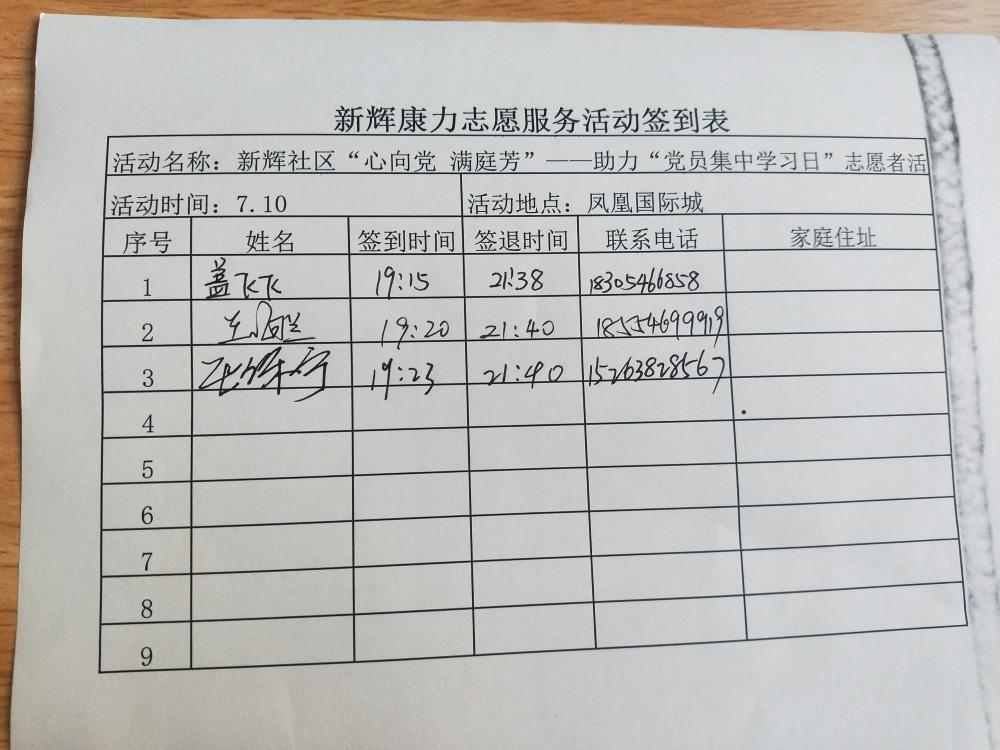 新辉康力志愿服务活动签到表
活动名称：新辉社区“心向党 满庭芳”——助力“党员集中学习日”志愿者活
活动时间：7.10 活动地点：凤凰国际城
序号 姓名 签到时间 签退时间 联系电话 家庭住址
1 盖飞飞 19:15 21:38 18305466858
2 19:20 21:40 18554699919
3 19:23 21:40 15263828567
4
5
6
7
8
9